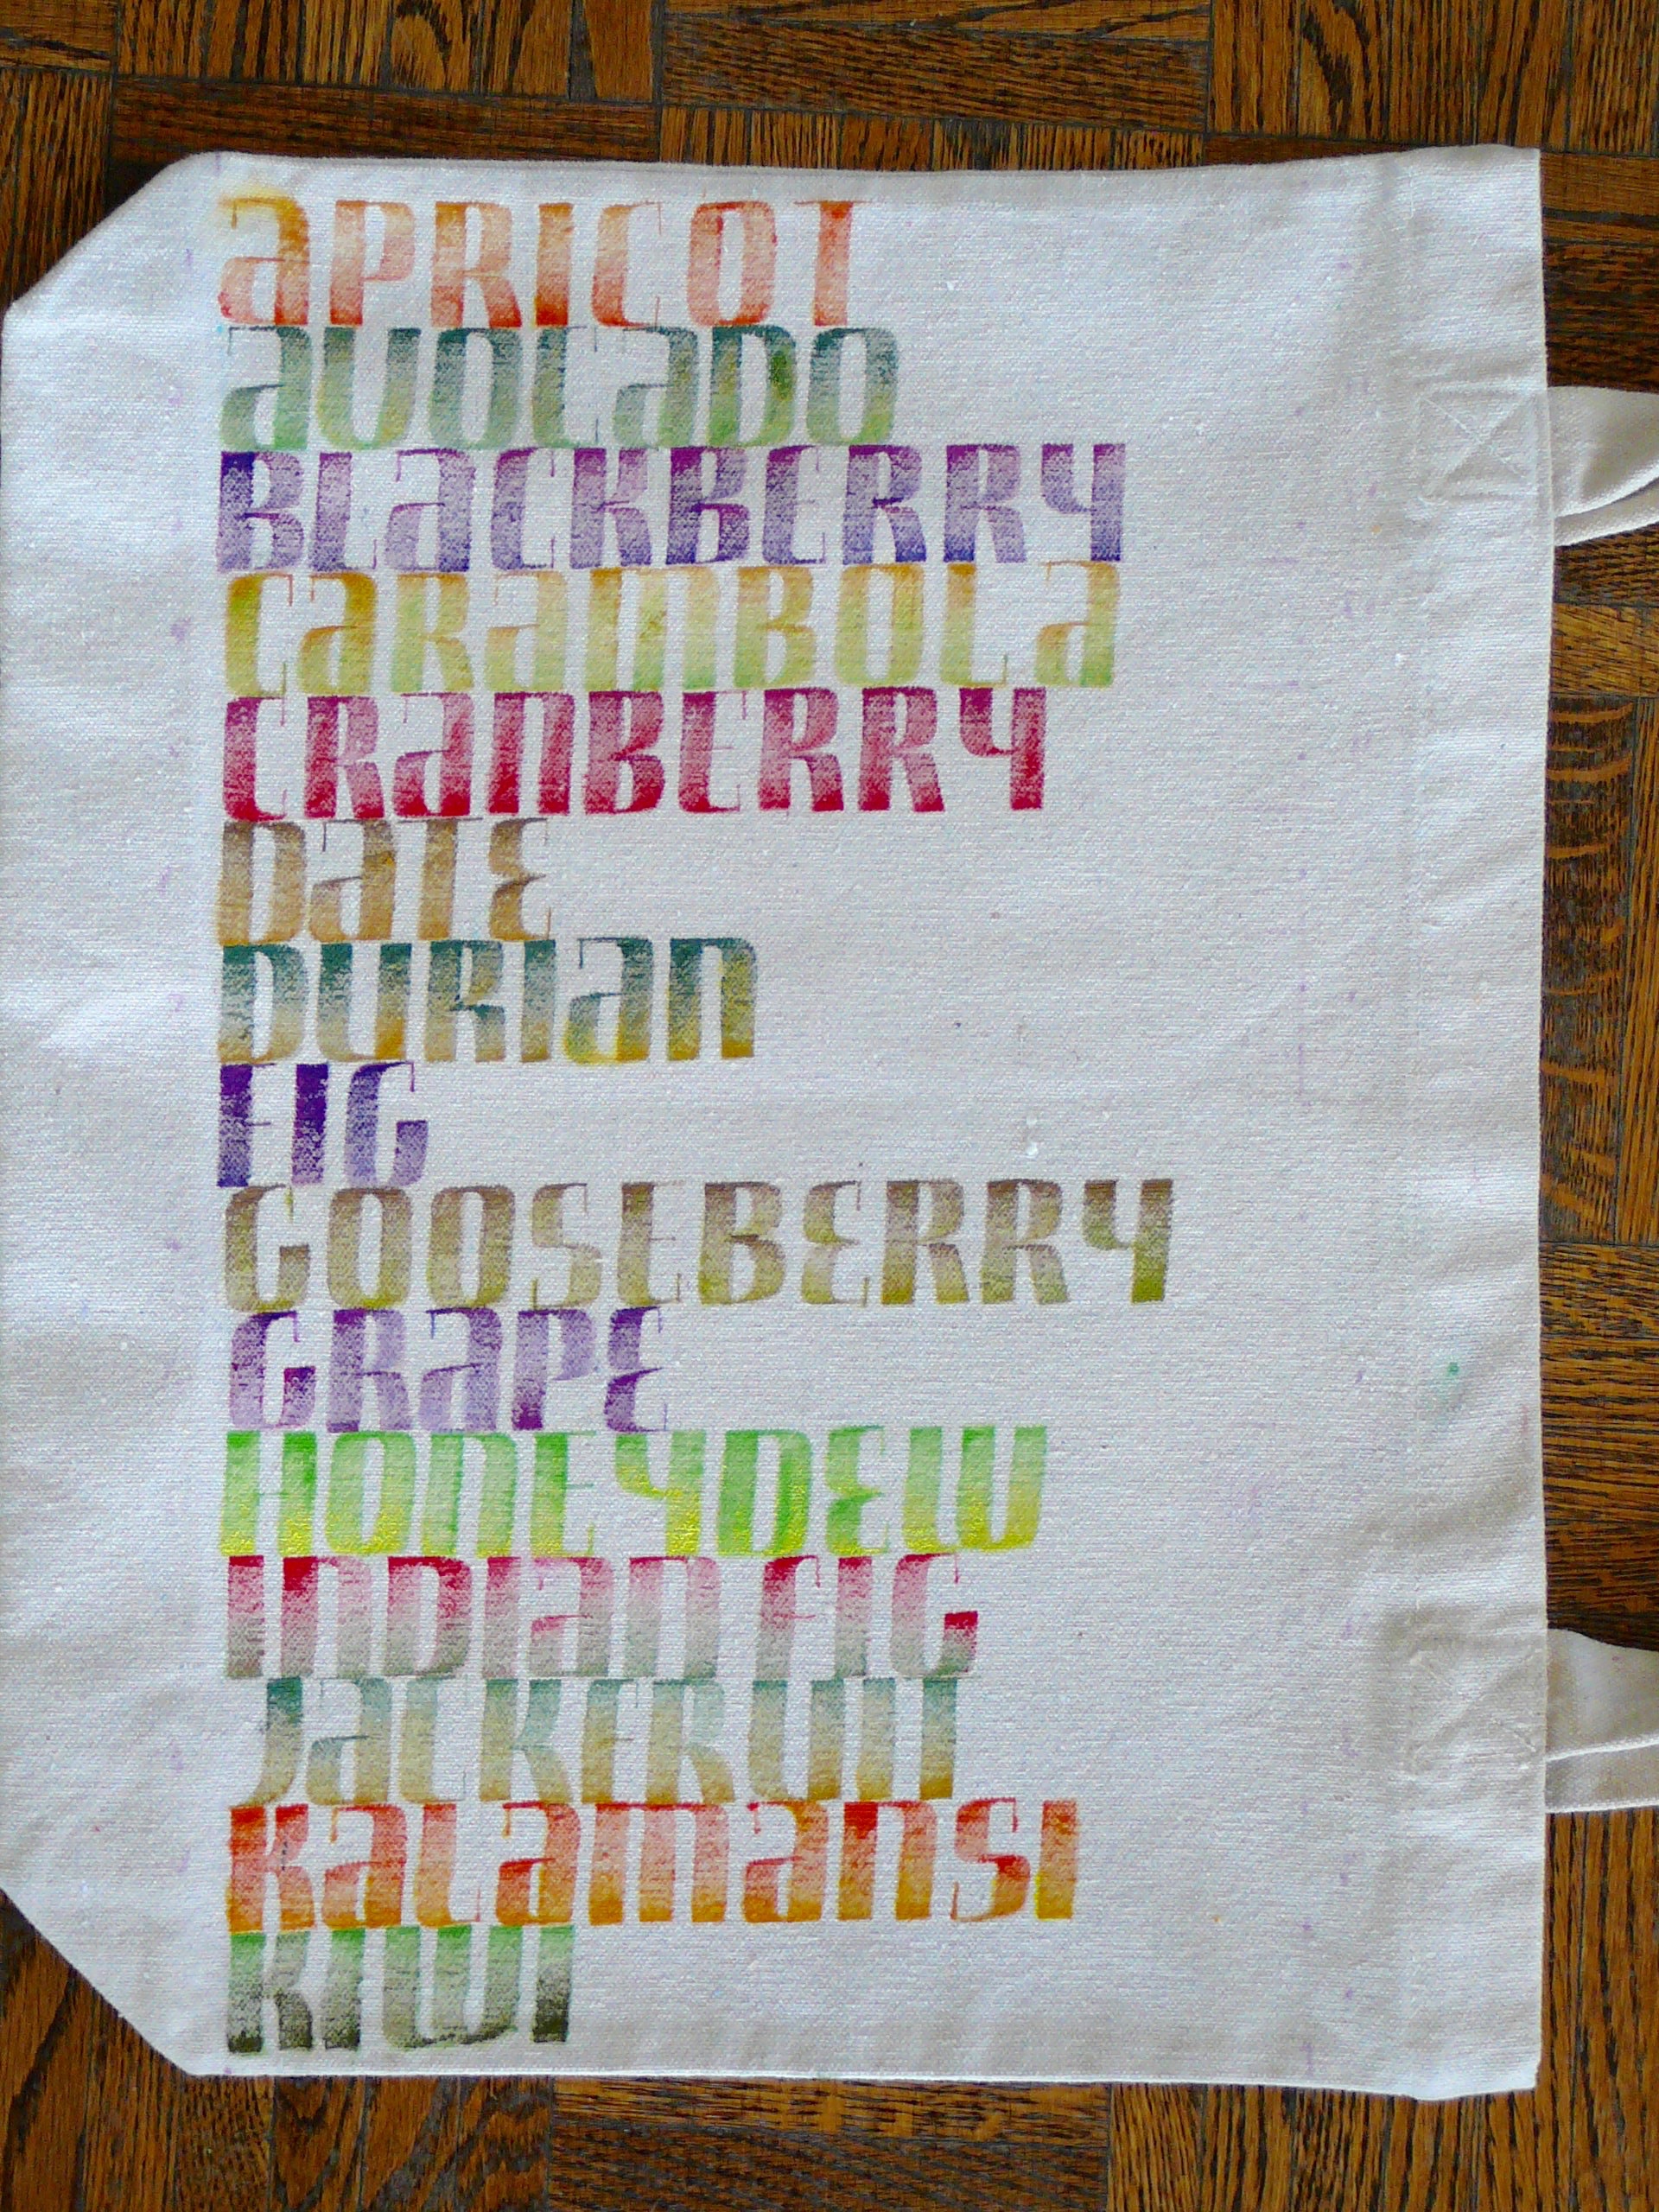 APRICOT
AVOCADO
BLACKBERRY
CARAMBOLA
CRANBERRY
DATE
DURIAN
FIG
GOOSEBERRY
GRAPE
HONEYDEW
INDIAN FIG
JACKFRUIT
KALAMANSI
KIWI